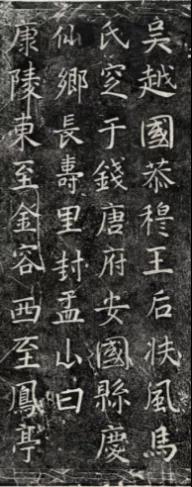 吳越國恭穆王后扶風馬
氏窆于錢唐府安國縣慶
仙鄉長壽里封孟山曰
康陵東至金容西至鳳亭